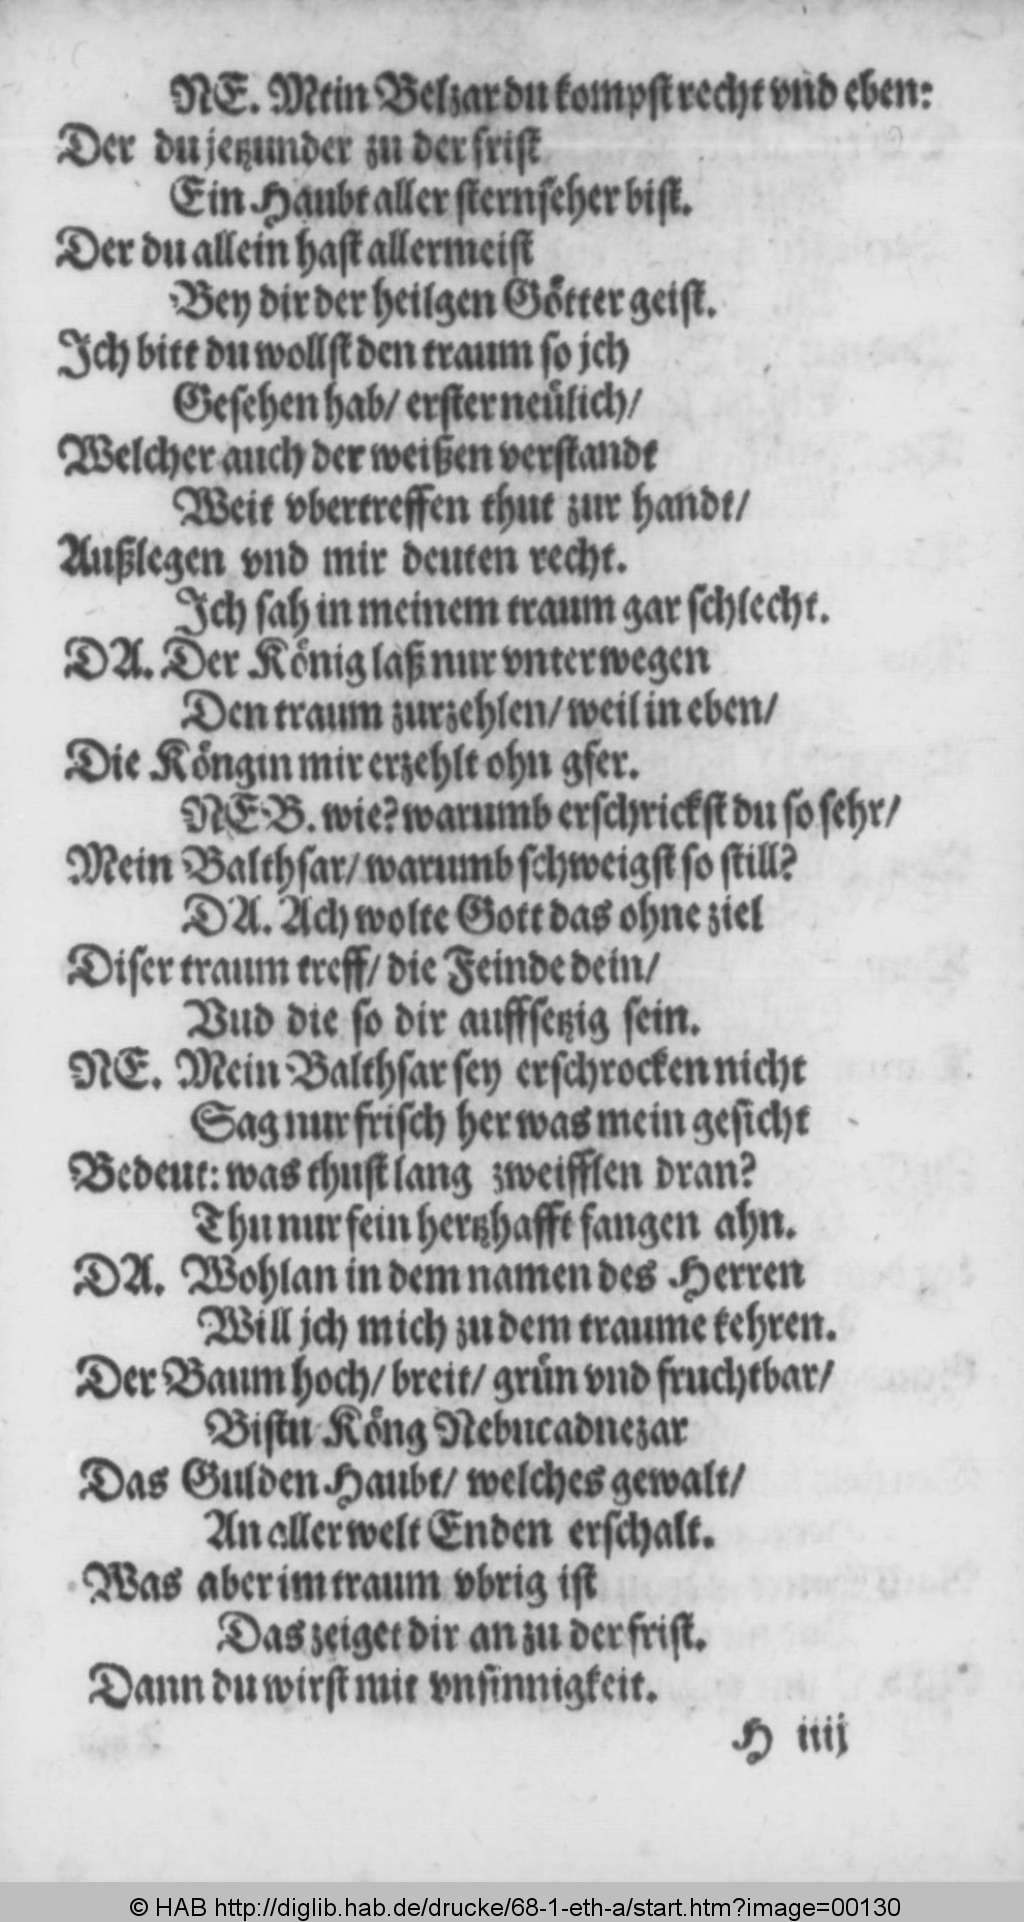 NE. Mein Belzar du kompst recht vnd eben:
Der du jetzunder zu der frist
Ein Haubt aller sternseher bist.
Der du allein hast allermeist
Bey dir der heilgen Götter geist.
Ich bitt du wollst den traum so jch
Gesehen hab/ erster neülich/
Welcher auch der weißen verstandt
Weit vbertreffen thut zur handt/
Außlegen vnd mir deuten recht.
Ich sah in meinem traum gar schlecht.
DA. Der König laß nur vnterwegen
Den traum zurzehlen/ weil in eben/
Die Köngin mir erzehlt ohn gfer.
NEB. wie? warumb erschrickst du so sehr/
Mein Balthsar/ warumb schweigst so still?
DA. Ach wolte Gott das ohne ziel
Diser traum treff/ die Feinde dein/
Vnd die so dir auffsetzig sein.
NE. Mein Balthsar sey erschrocken nicht
Sag nur frisch her was mein gesicht
Bedeut: was thust lang zweifflen dran?
Thu nur fein hertzhafft fangen ahn.
DA. Wohlan in dem namen des Herren
Will jch mich zu dem traume kehren.
Der Baum hoch/ breit/ grün vnd fruchtbar/
Bistu Köng Nebucadnezar
Das Gulden Haubt/ welches gewalt/
An aller welt Enden erschalt.
Was aber im traum vbrig ist
Das zeiget dir an zu der frist.
Dann du wirst mit vnsinnigkeit.
H iiij
© HAB http://diglib.hab.de/drucke/68-1-eth-a/start.htm?image=00130